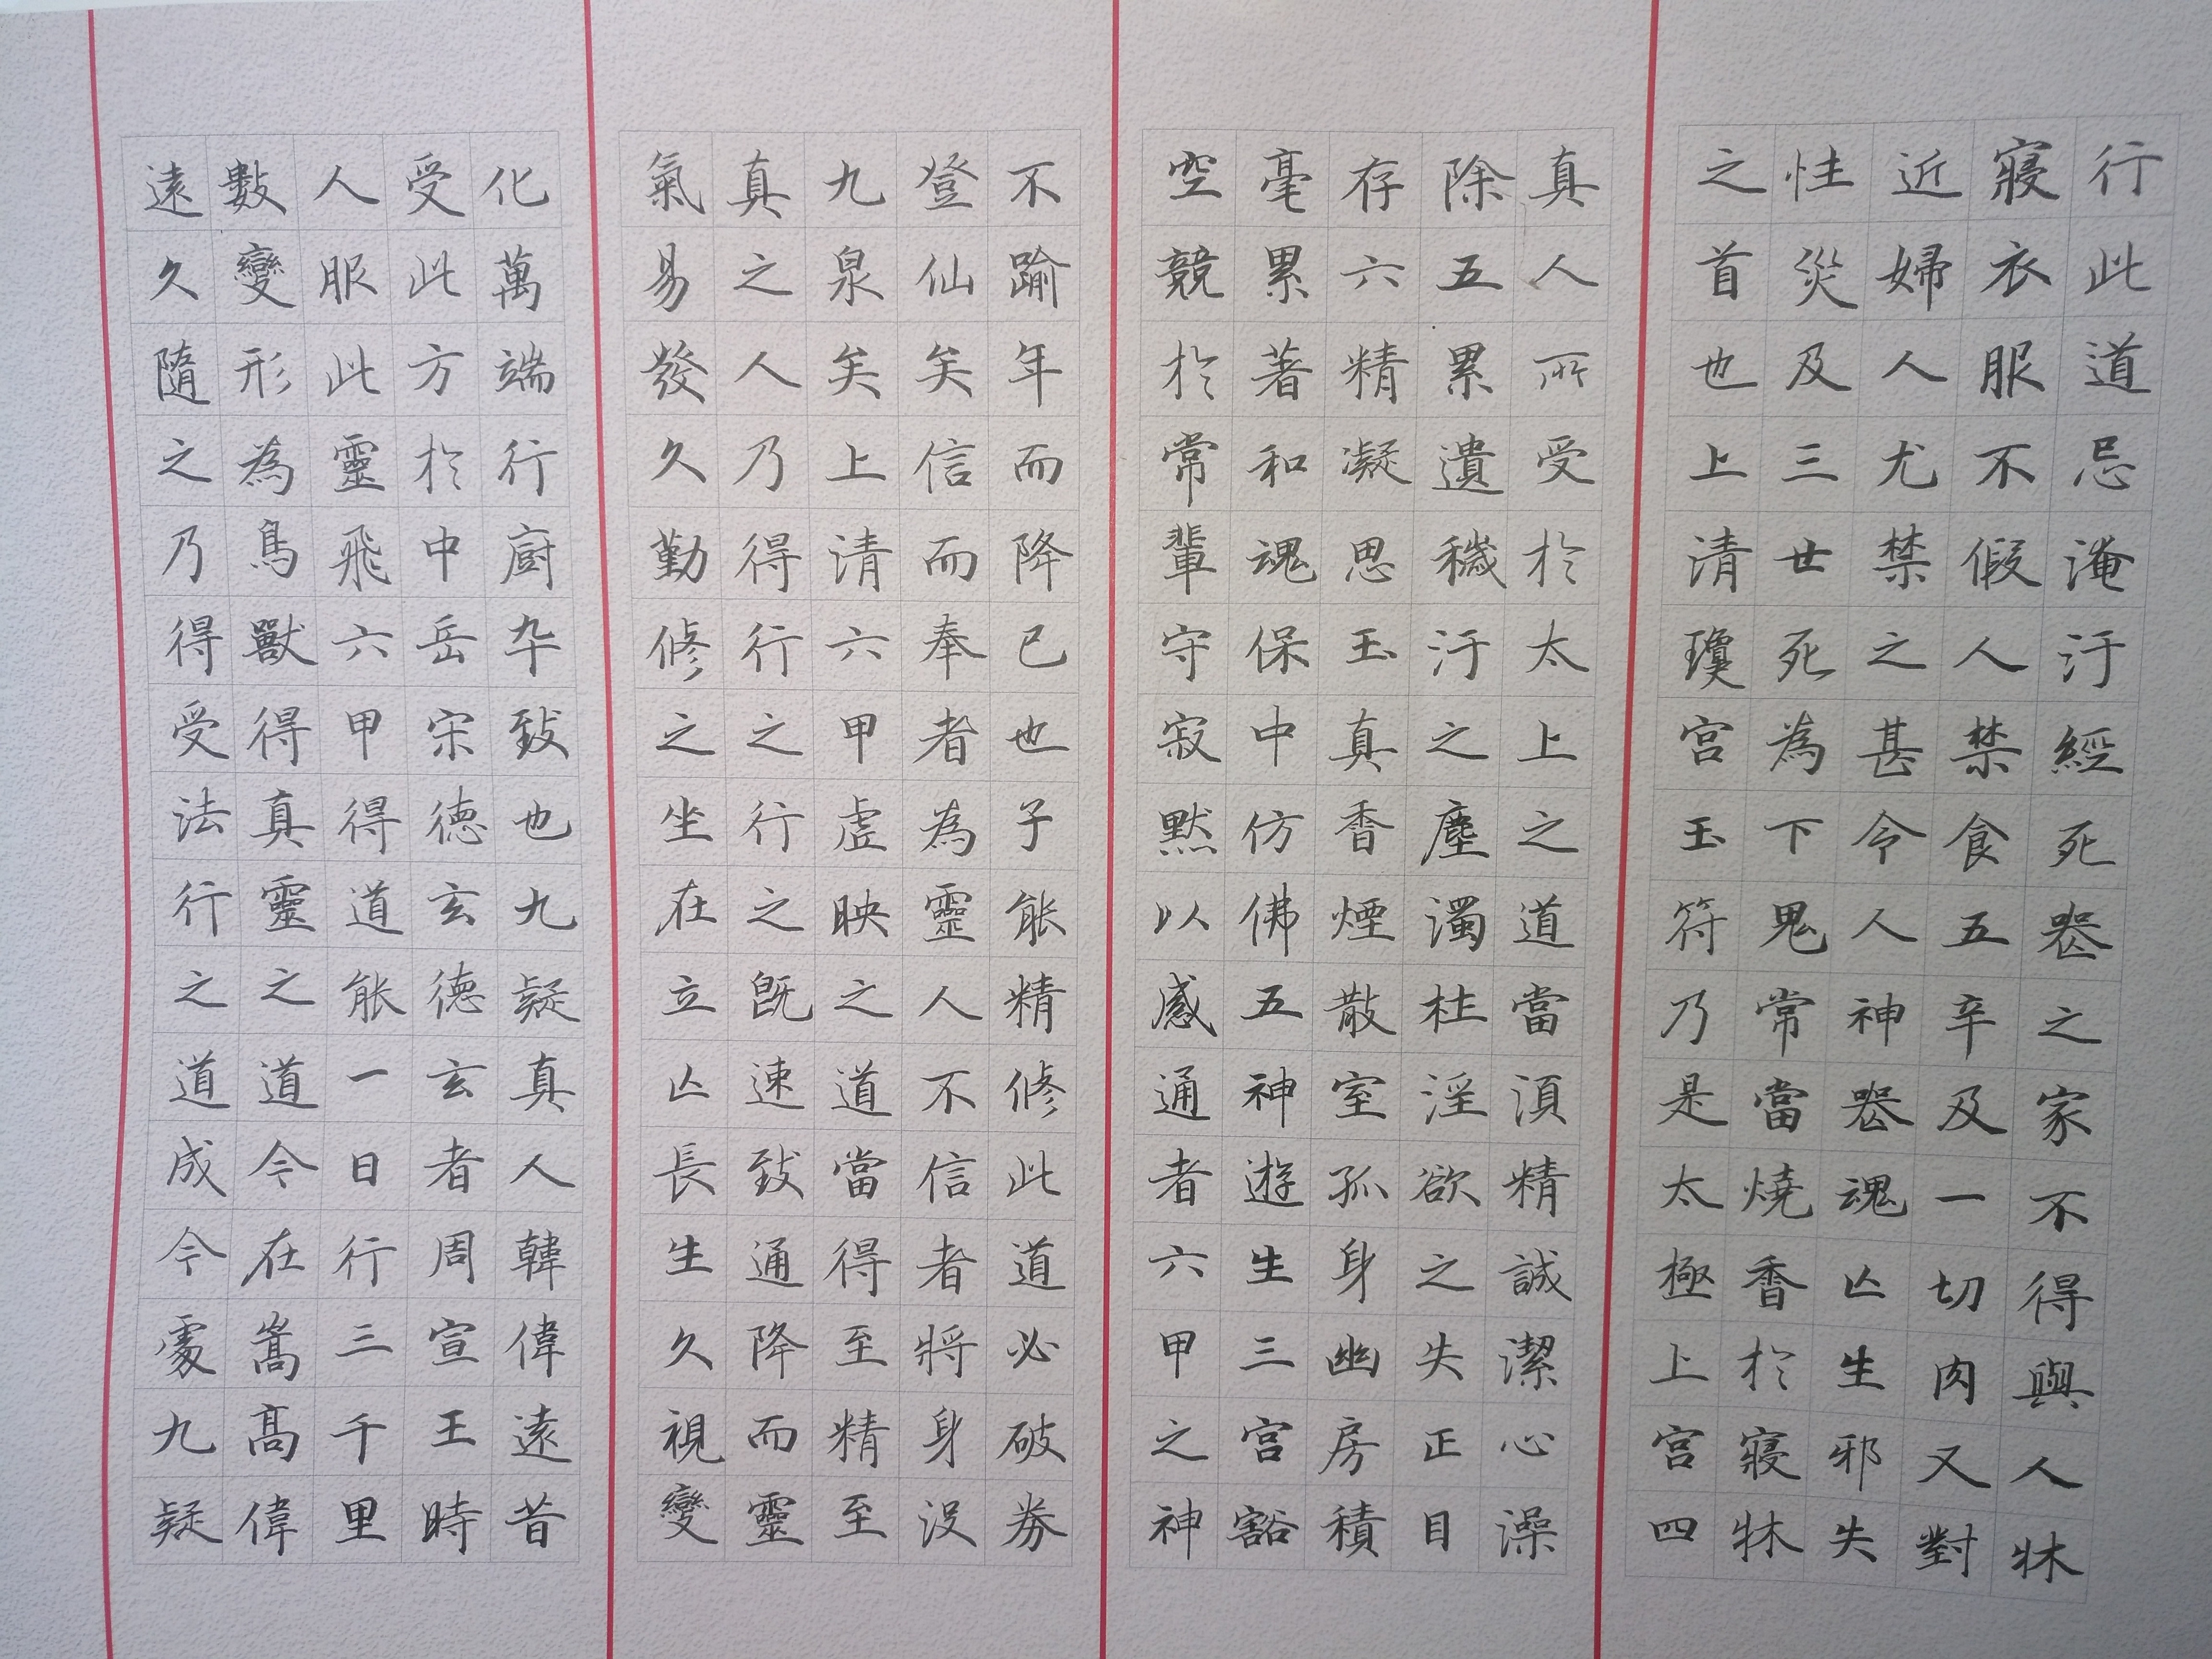 行此道忌淹汙經死喪之家不得與人牀
寢衣服不假人禁食五辛及一切肉又對
近婦人尤禁之甚令人神喪魂亡生邪失
性災及三世死為下鬼常當燒香於寢牀
之首也上清瓊宮玉符乃是太極上宮四
真人所受於太上之道當須精誠潔心澡
除五累遺穢汙之塵濁杜淫欲之失正目
存六精凝思玉真香煙散室孤身幽房積
毫累著和魂保中仿佛五神遊生三宮豁
空競於常輩守寂默以感通者六甲之神
不踰年而降已也子能精修此道必破券
登仙矣信而奉者為靈人不信者將身沒
九泉矣上清六甲虛映之道當得至精至
真之人乃得行之行之既速致通降而靈
氣易發久勤修之坐在立亡長生久視變
化萬端行廚卒致也九疑真人韓偉遠昔
受此方於中岳宋德玄德玄者周宣王時
人服此靈飛六甲得道能一日行三千里
數變形為鳥獸得真靈之道今在嵩高偉
遠久隨之乃得受法行之道成今處九疑